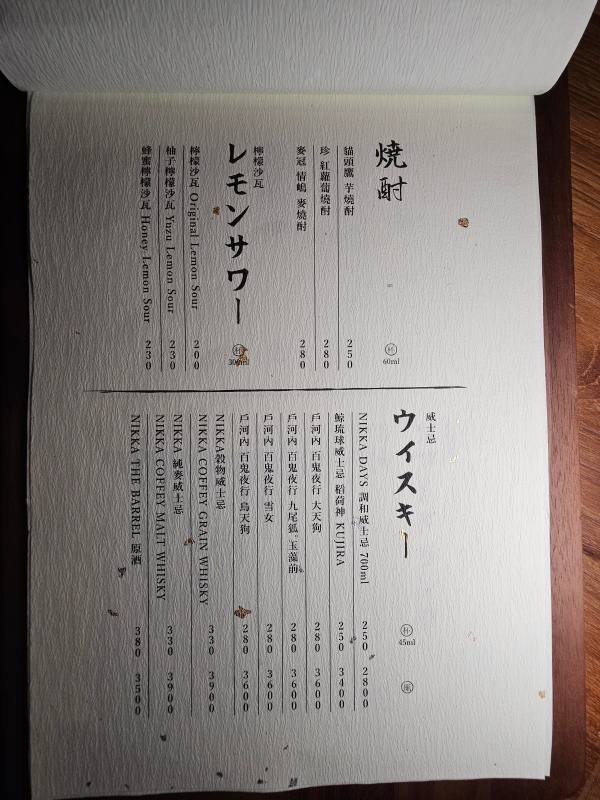 焼酎
杯
60ml
貓頭鷹 芋燒酎 250
珍 紅蘿蔔燒酎 280
麥冠 情嶋 麥燒酎 280
檸檬沙瓦
レモンサワー
杯
30ml
檸檬沙瓦 Original Lemon Sour 200
柚子檸檬沙瓦 Yuzu Lemon Sour 230
蜂蜜檸檬沙瓦 Honey Lemon Sour 230
威士忌
ウイスキー
杯
45ml
瓶
NIKKA DAYS 調和威士忌 700ml 250 2800
鯨琉球威士忌 稻荷神 KUJIRA 250 3400
戶河內 百鬼夜行 大天狗 280 3600
戶河內 百鬼夜行 九尾狐。玉藻前 280 3600
戶河內 百鬼夜行 雪女 280 3600
戶河內 百鬼夜行 烏天狗 280 3600
NIKKA穀物威士忌
NIKKA COFFEY GRAIN WHISKY 330 3900
NIKKA 純麥威士忌
NIKKA COFFEY MALT WHISKY 330 3900
NIKKA THE BARREL 原酒 380 3500